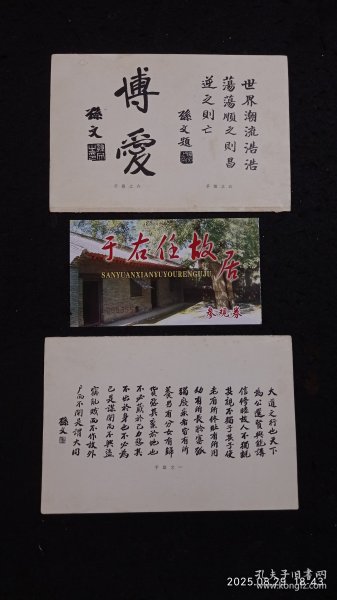 世界潮流浩浩
蕩蕩順之則昌
逆之則亡
孫文題
博愛
孫文
于右任故居
SANYUANXIANYUYOURENGUJU
參观券
大道之行也天下
為公選賢與能講
信修睦故人不獨親
其親不獨子其子使
老有所終壯有所用
幼有所長矜寡孤
獨廢疾者皆有所
養男有分女有歸
貨惡其棄於地也
不必藏於己力惡其
不出於身也不必為
己是謀閉而不興盜
竊亂賊而不作故外
戶而不閉是謂大同
孫文
2025.08.29 18:43
孔夫子旧書网